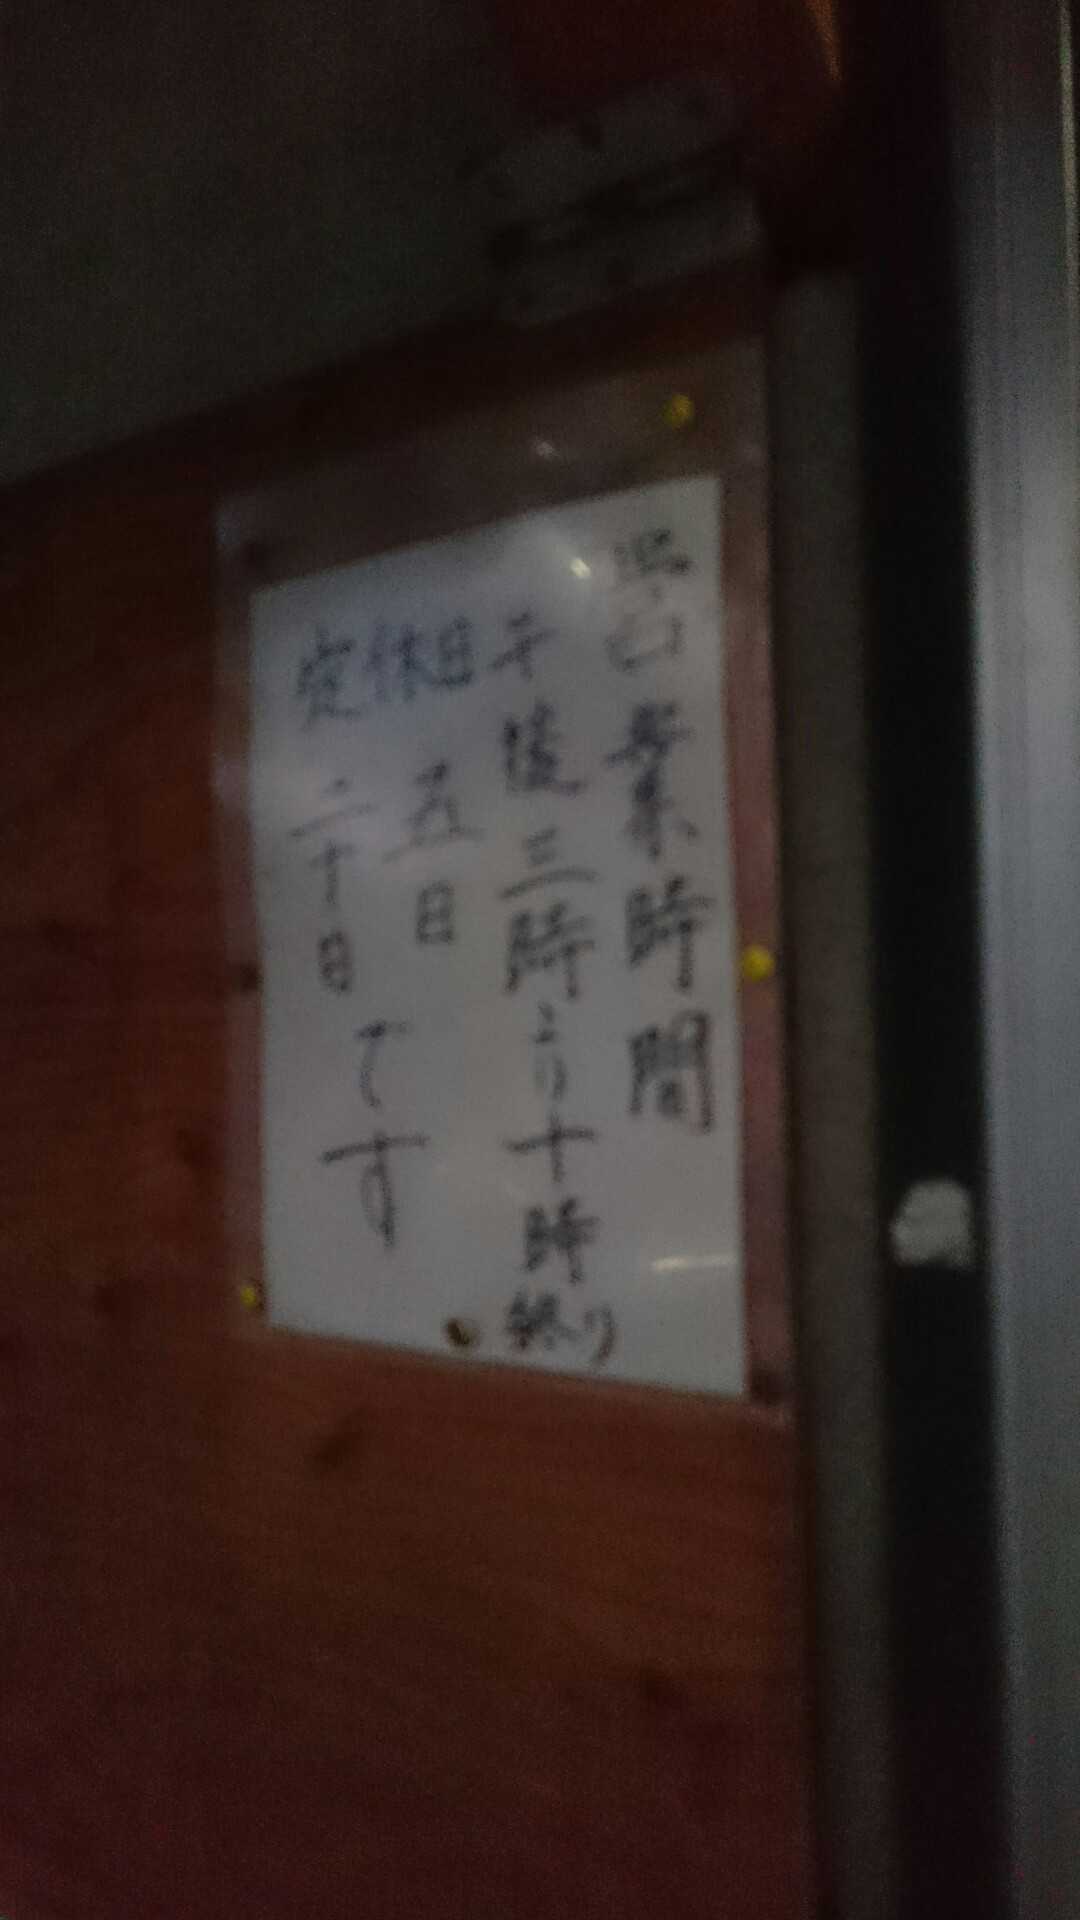 営業時間
午後三時より十時終り
定休日
五日
二十日
です